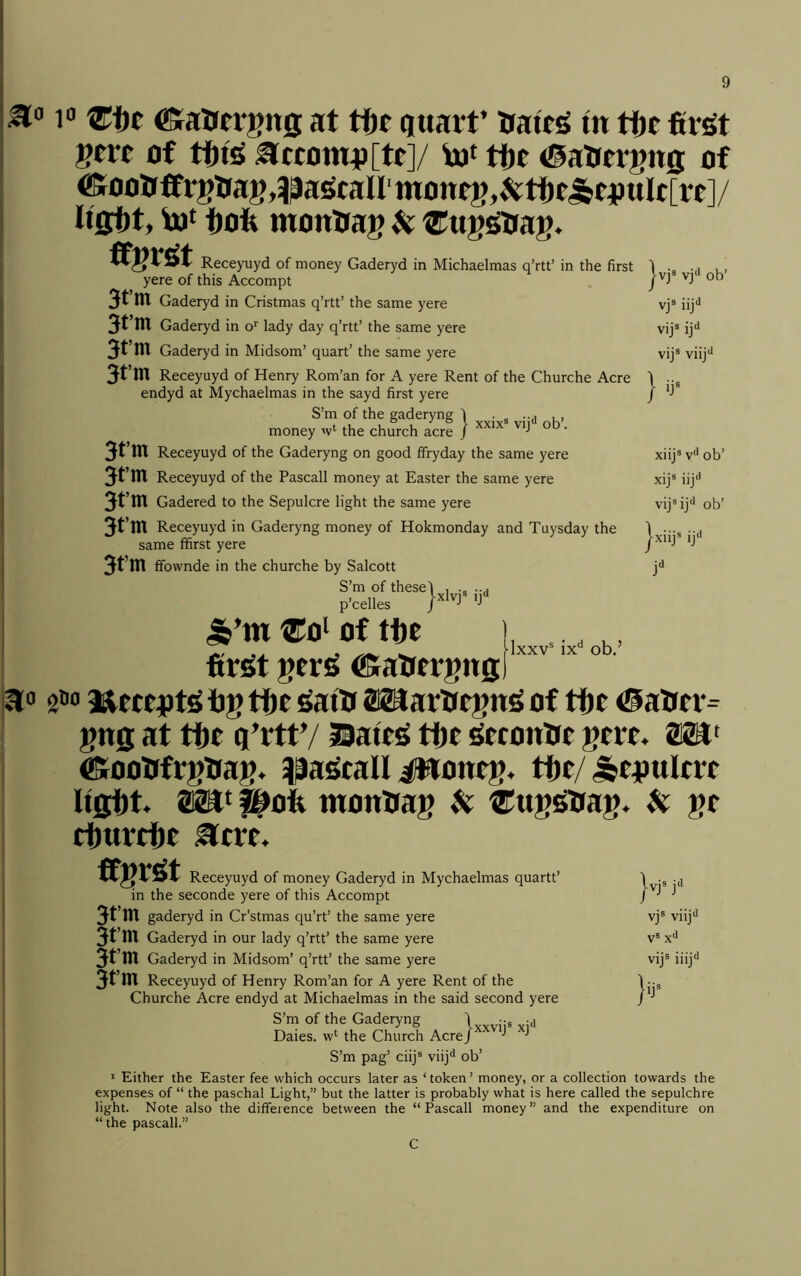 9
Aº 1º The Gaderyng at the quart’ daies in the first
yere of this Accomp[te]/ wᵗ the Gaderyng of
Goodffryday, Pascall¹ money, & the Sepulc[re]/
light, wᵗ hok monday & Tuysday.
ffyrst Receyuyd of money Gaderyd in Michaelmas q’rtt’ in the first
yere of this Accompt } vjˢ vjᵈ ob’
It’m Gaderyd in Cristmas q’rtt’ the same yere vjˢ iijᵈ
It’m Gaderyd in oʳ lady day q’rtt’ the same yere vijˢ ijᵈ
It’m Gaderyd in Midsom’ quart’ the same yere vijˢ viijᵈ
It’m Receyuyd of Henry Rom’an for A yere Rent of the Churche Acre
endyd at Mychaelmas in the sayd first yere } ijˢ
S’m of the gaderyng
money wᵗ the church acre } xxixˢ vijᵈ ob’.
It’m Receyuyd of the Gaderyng on good ffryday the same yere xiijˢ vᵈ ob’
It’m Receyuyd of the Pascall money at Easter the same yere xijˢ iijᵈ
It’m Gadered to the Sepulcre light the same yere vijˢ ijᵈ ob’
It’m Receyuyd in Gaderyng money of Hokmonday and Tuysday the
same ffirst yere } xiijˢ ijᵈ
It’m ffownde in the churche by Salcott jᵈ
S’m of these
p’celles } xlvjˢ ijᵈ
S’m Toˡ of the
first yers Gaderyng } lxxvˢ ixᵈ ob.’
Aº 2ᵈᵒ Recepts by the said Wardeyns of the Gader-
yng at the q’rtt’/ Daies the seconde yere. Wᵗ
Goodfryday. Pascall Money. the/ Sepulcre
light. Wᵗ Hok monday & Tuysday. & ye
churche Acre.
ffyrst Receyuyd of money Gaderyd in Mychaelmas quartt’
in the seconde yere of this Accompt } vjˢ jᵈ
It’m gaderyd in Cr’stmas qu’rt’ the same yere vjˢ viijᵈ
It’m Gaderyd in our lady q’rtt’ the same yere vˢ xᵈ
It’m Gaderyd in Midsom’ q’rtt’ the same yere vijˢ iiijᵈ
It’m Receyuyd of Henry Rom’an for A yere Rent of the
Churche Acre endyd at Michaelmas in the said second yere } ijˢ
S’m of the Gaderyng
Daies. wᵗ the Church Acre } xxvijˢ xjᵈ
S’m pag’ ciijˢ viijᵈ ob’
¹ Either the Easter fee which occurs later as ‘token’ money, or a collection towards the
expenses of “ the paschal Light,” but the latter is probably what is here called the sepulchre
light. Note also the difference between the “ Pascall money ” and the expenditure on
“ the pascall.”
C